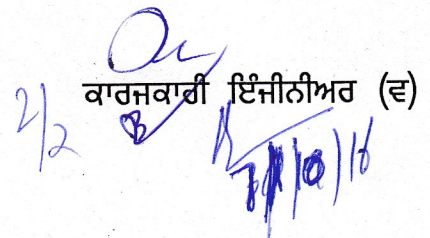 ਕਾਰਜਕਾਰੀ ਇੰਜੀਨੀਅਰ (ਵ)
2/2